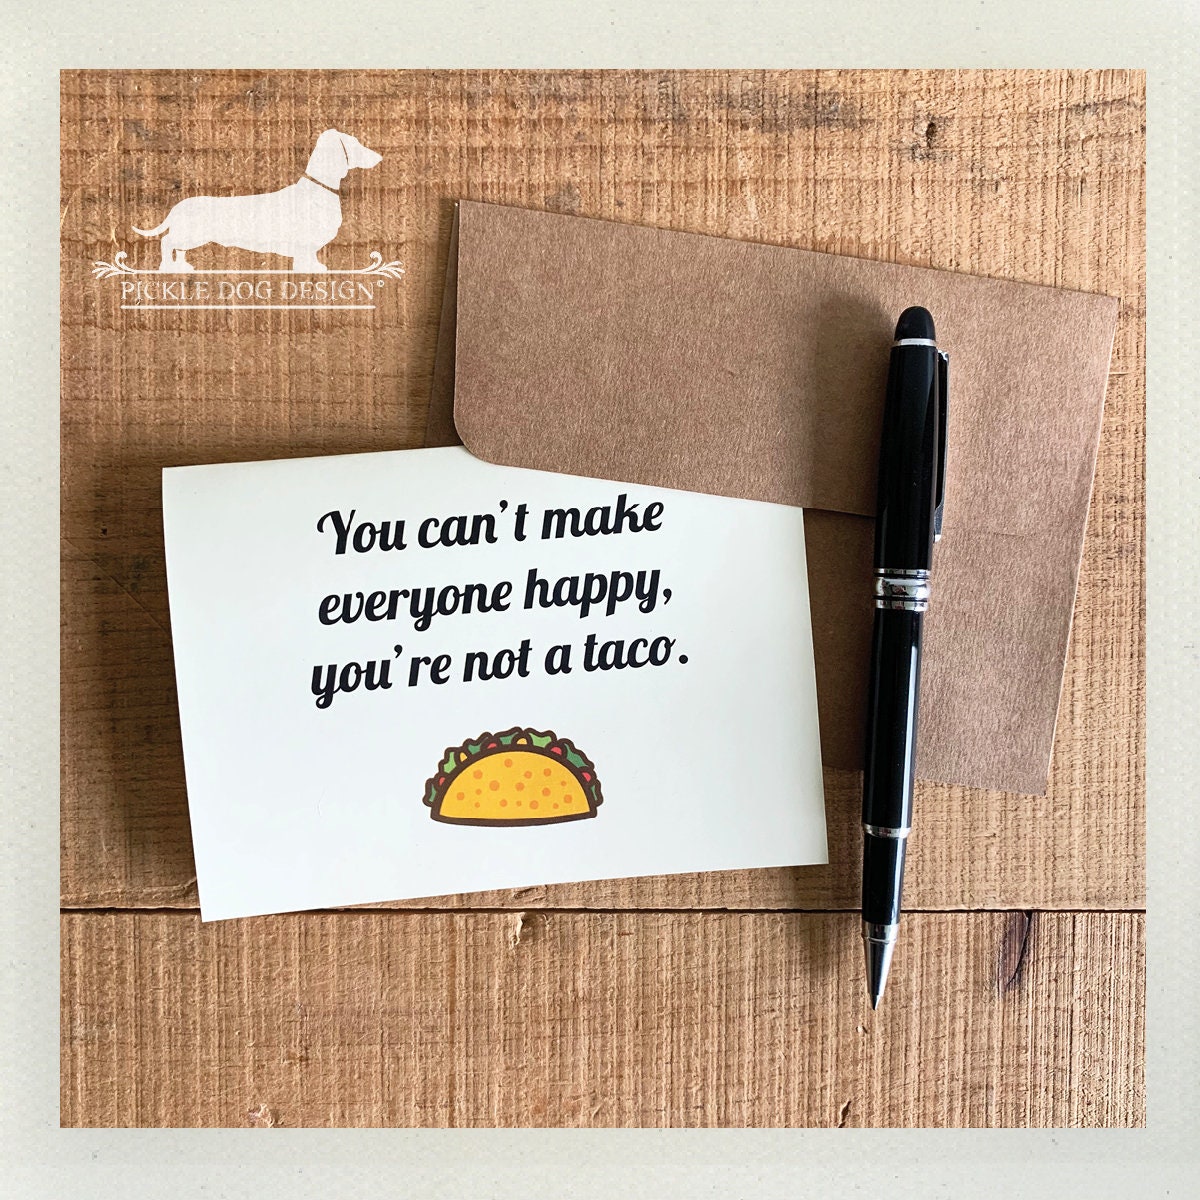 PICKLE DOG DESIGN®
You can't make
everyone happy,
you're not a taco.